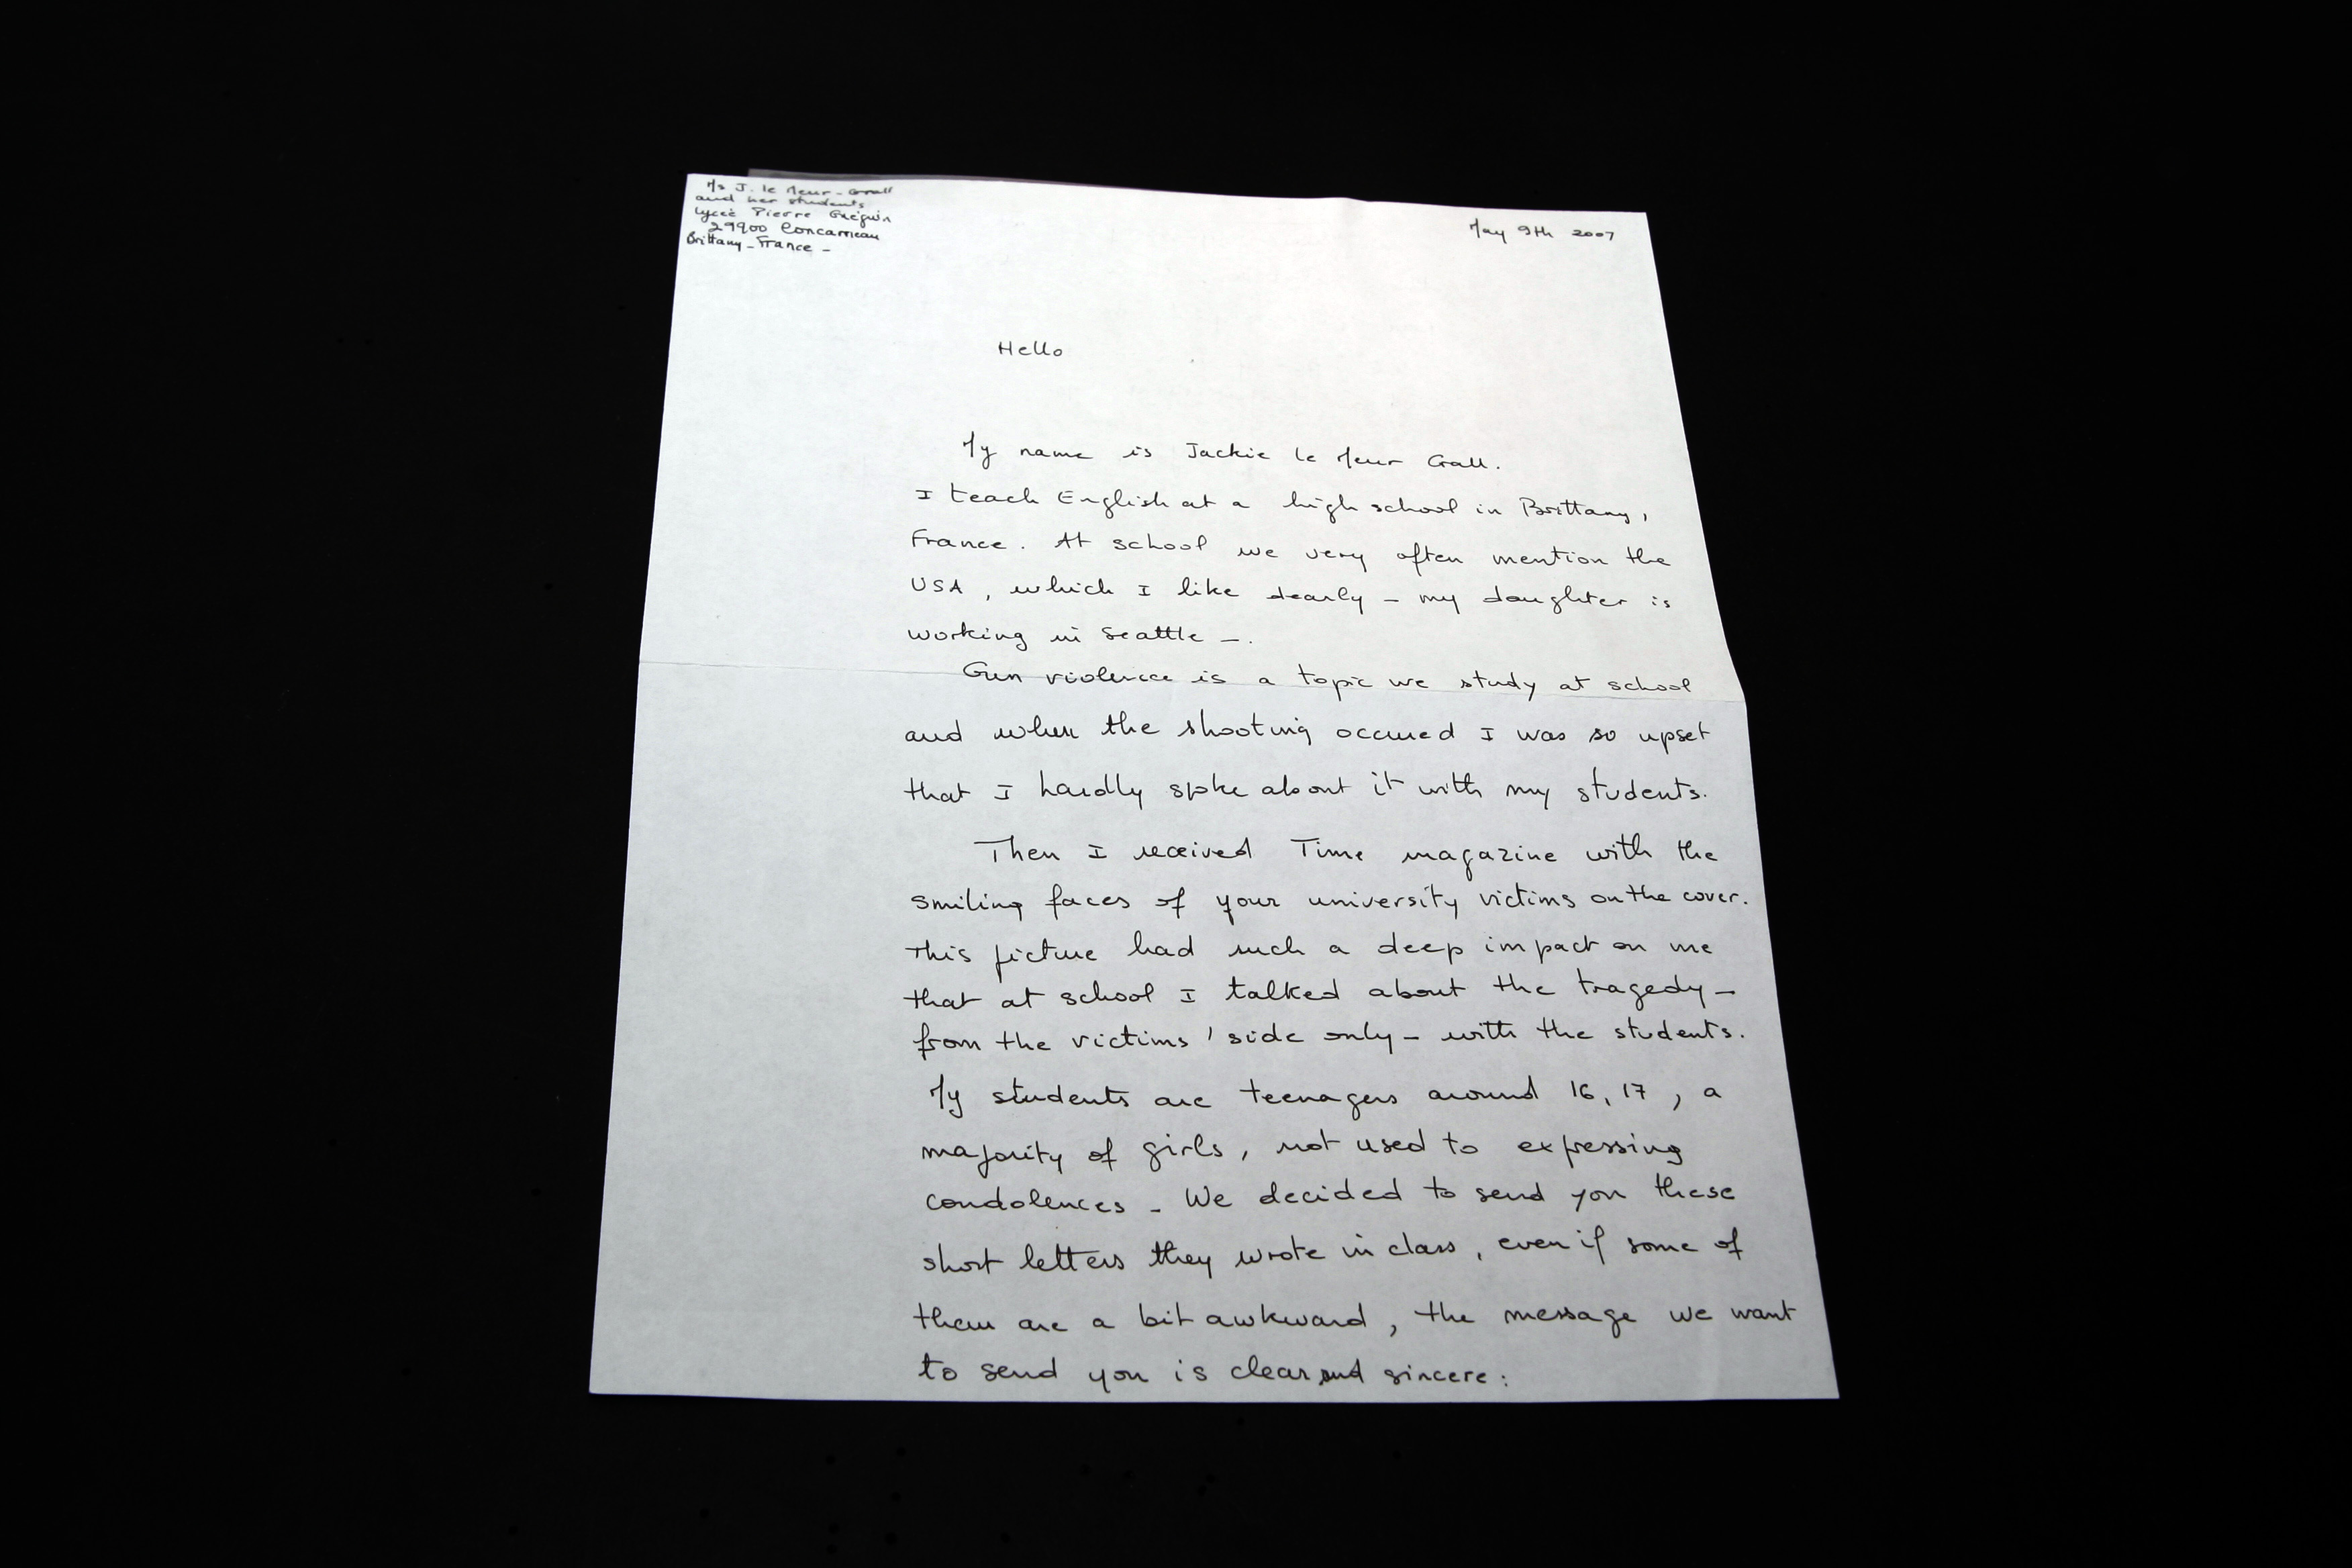 Ms J. le Meur-Grall
and her students
Lycée Pierre Guéguin
29900 Concarneau
Brittany - France -
May 9th 2007
Hello
My name is Jackie le Meur Grall.
I teach English at a high school in Brittany,
France. At school we very often mention the
USA, which I like dearly - my daughter is
working in Seattle -.
Gun violence is a topic we study at school
and when the shooting occured I was so upset
that I hardly spoke about it with my students.
Then I received Time magazine with the
smiling faces of your university victims on the cover.
This picture had such a deep impact on me
that at school I talked about the tragedy -
from the victims' side only - with the students.
My students are teenagers around 16, 17, a
majority of girls, not used to expressing
condolences - We decided to send you these
short letters they wrote in class, even if some of
them are a bit awkward, the message we want
to send you is clear and sincere: